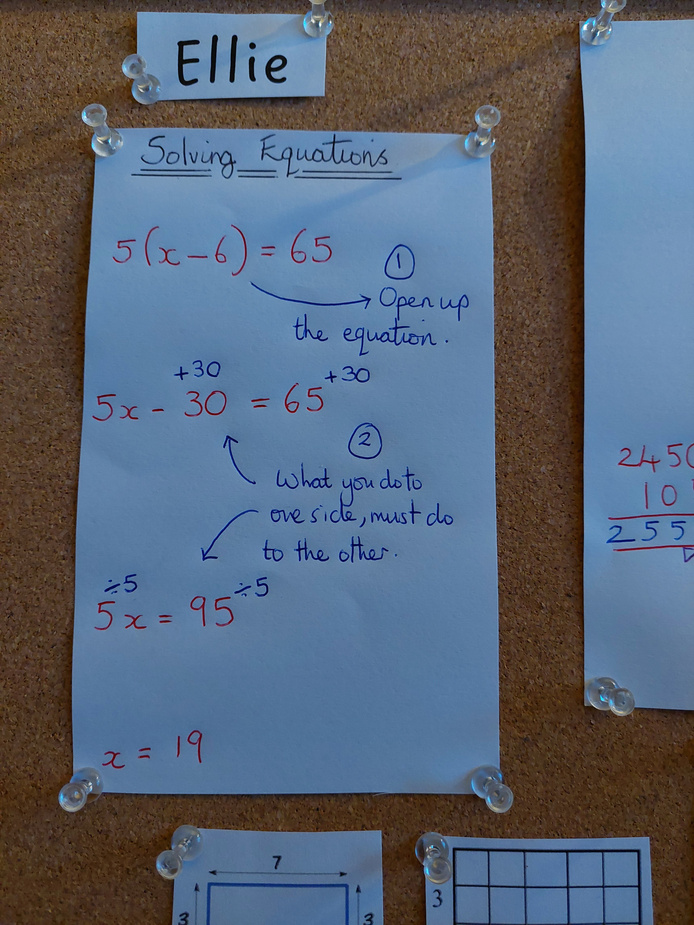 Ellie
Solving Equations
5(x-6) = 65
1
Open up
the equation.
+30 +30
5x - 30 = 65
2
What you do to
one side, must do
to the other.
÷5 ÷5
5x = 95
x = 19
245
10
255
7
3 3
3